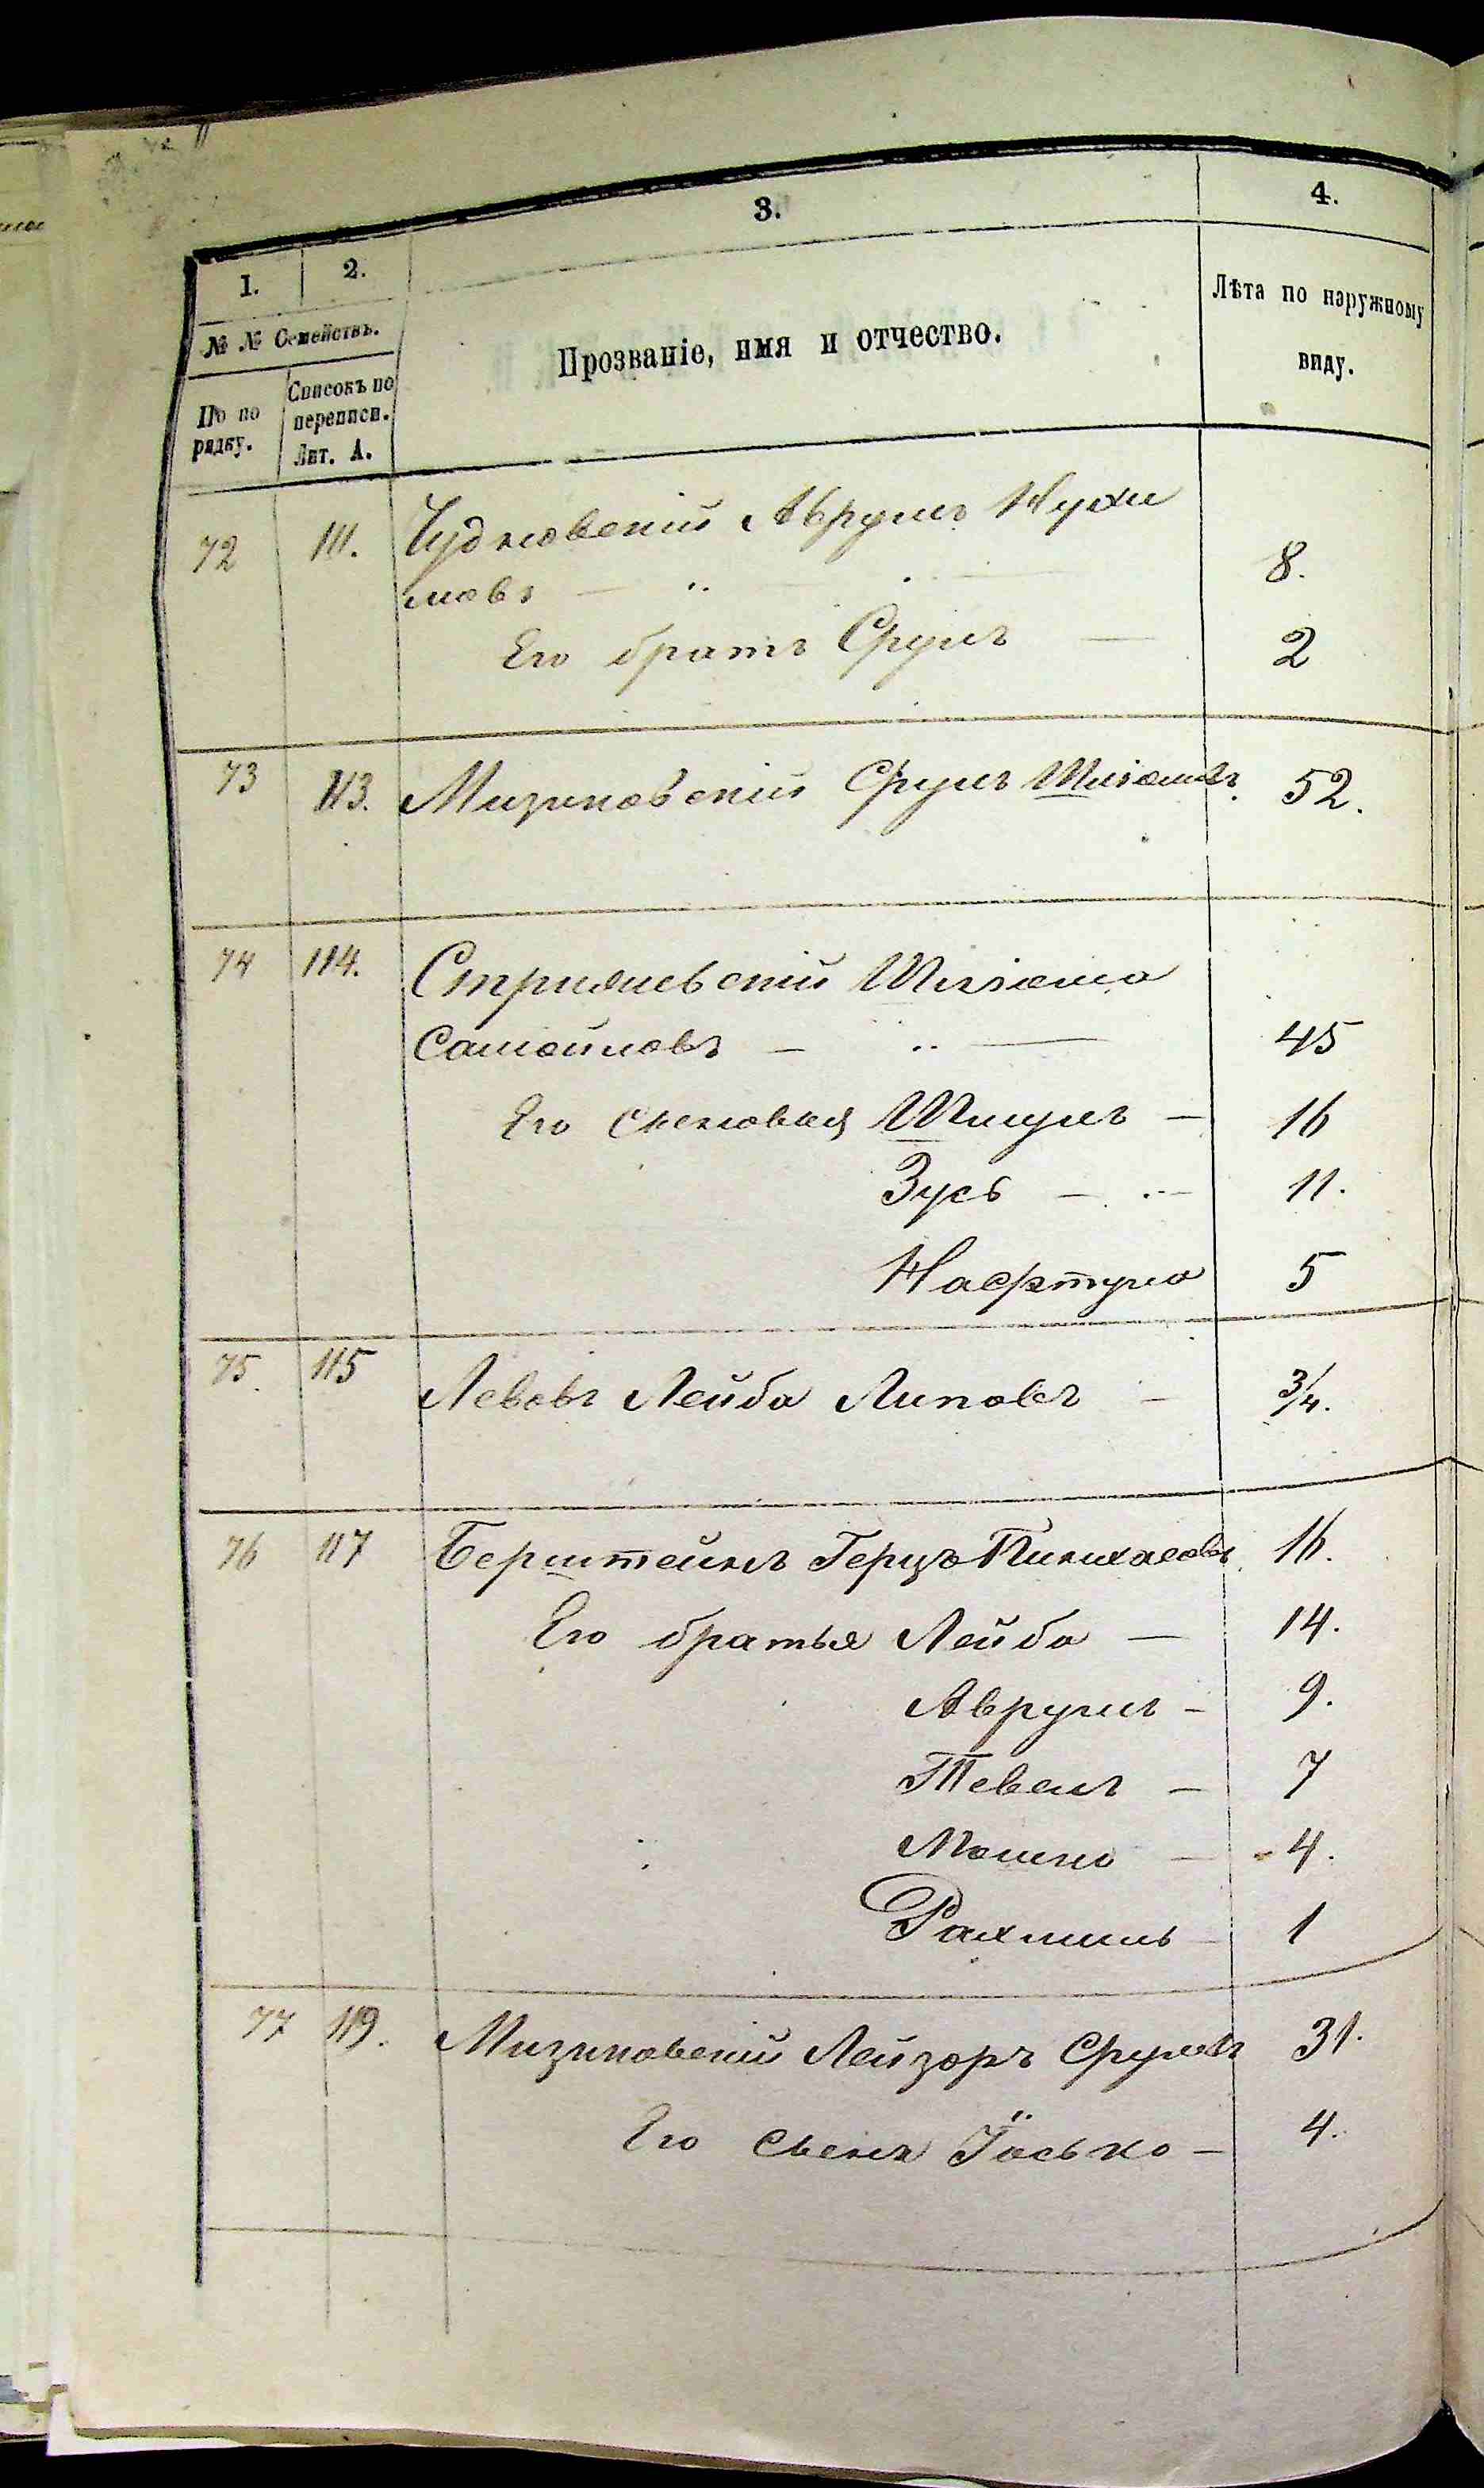 1.
2.
3.
4.
№ № Семействъ.
По по
рядку.
Списокъ по
переписи.
Лит. А.
Прозваніе, имя и отчество.
Лѣта по наружному
виду.
72 111. Чудновскій Аврумъ Нухи
мовъ — 8.
Его братъ Сруль — 2
73 113. Мизиковскій Сруль Шліомовъ 52.
74 114. Стрияневскій Шліома
Самойловъ — 45
Его сыновья Шмуль — 16
Зусь — 11.
Нафтула 5
75. 115 Левовъ Лейба Липовъ — 3/4.
76 117 Берштейнъ Герцъ Пинхасовъ 16.
Его братья Лейба — 14.
Аврумъ — 9.
Тевель — 7
Мошко — 4.
Рахмиль 1
77 119. Мизиковскій Лейзоръ Срулевъ 31.
Его сынъ Іосько — 4.